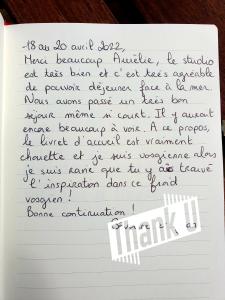 18 au 20 avril 2022,
Merci beaucoup Amélie, le studio
est très bien et c'est très agréable
de pouvoir déjeuner face à la mer.
Nous avons passé un très bon
séjour même si court. Il y aurait
encore beaucoup à voir. A ce propos,
le livret d'accueil est vraiment
chouette et je suis vosgienne alors
je suis ravie que tu y as trouvé
l'inspiration dans ce froid
vosgien !
Bonne continuation !
Thank U